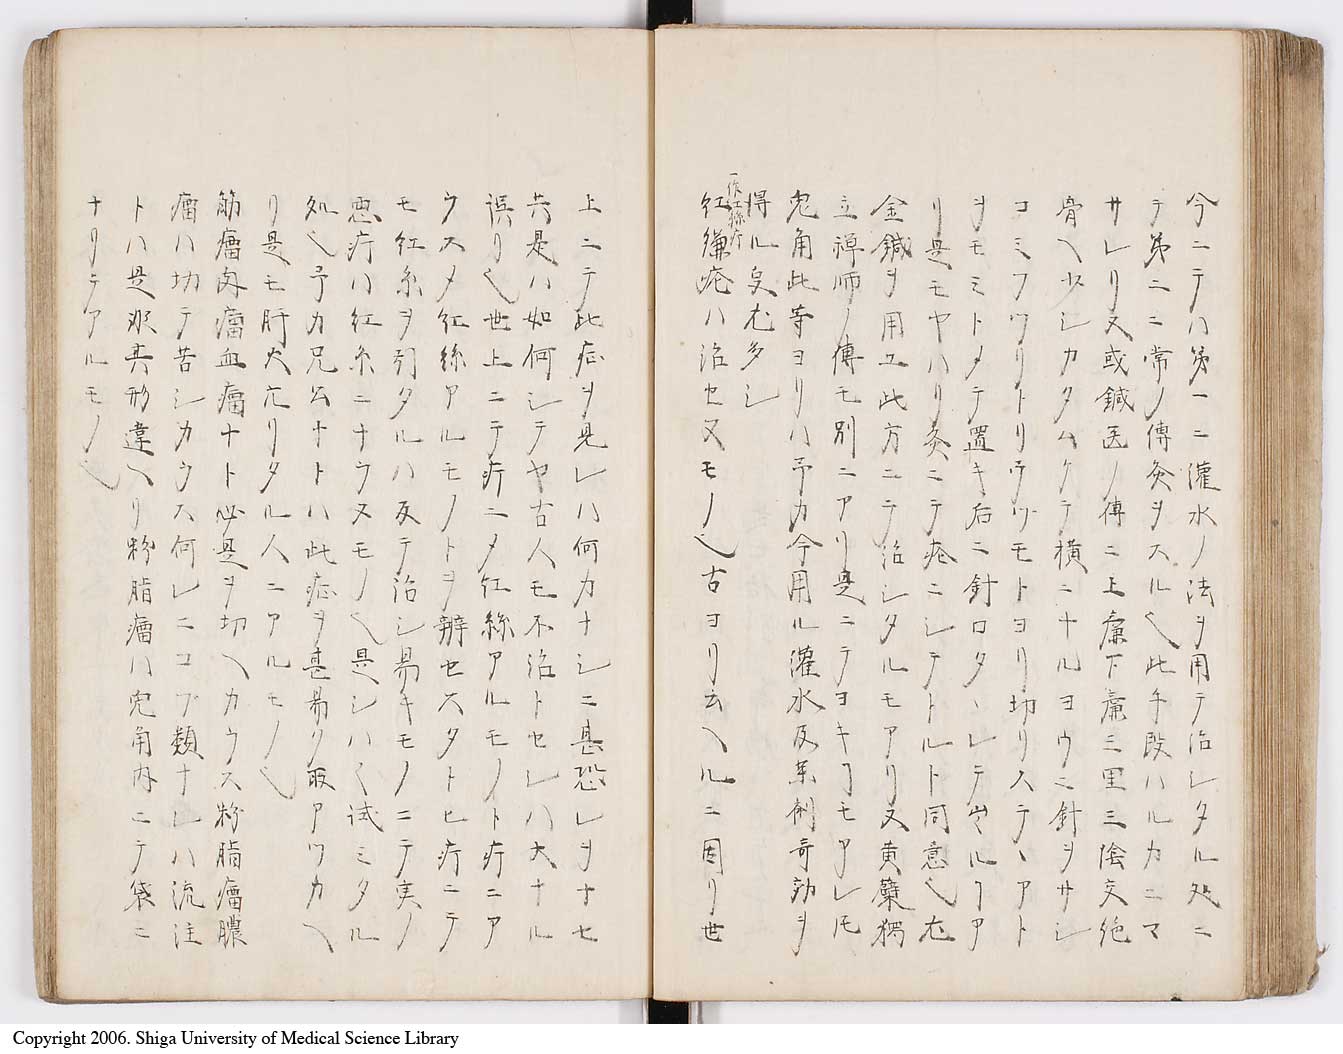 今ニテハ第一ニ灌水ノ法ヲ用テ治シタル処ニ
テ第二ニ常ノ傳灸ヲスル也此手段ハルカニマ
サレリ又或鍼医ノ傳ニ上廉下廉三里三陰交絶
骨ヘ少シカタムケテ横ニナルヨウニ針ヲサシ
コミフツリトリテツモトヨリ切リステヽアト
ヲモミトメテ置キ后ニ針口タヽレテ出ルヿア
リ是モヤハリ灸ニテ瘡ニシテトルト同意也尤
金鍼ヲ用ユ此方ニテ治シタルモアリ又黄蘗獨
立禅師ノ傳モ別ニアリ是ニテヨキヿモアレ𪜈
兎角此等ヨリハ予カ今用ル灌水反薬剤奇効ヲ
得ル㕝尤多シ
一作紅絲疔
紅纏疮ハ治セヌモノ也古ヨリ云ヘルニ因リ世
上ニテ此症ヲ見レハ何カナシニ甚恐レヲナセ
共是ハ如何シテヤ古人モ不治トセシハ大ナル
誤リ也世上ニテ疔ニメ紅絲アルモノト疔ニア
ウスメ紅絲アルモノトヲ辨セスタトヒ疔ニテ
モ紅糸ヲ引タルハ反テ治シ易キモノニテ実ノ
悪疔ハ紅糸ニナラヌモノ也是シハ〱試ミタル
処也予カ兄公ナトハ此症ヲ甚易ク取アツカヘ
リ是モ肝火亢リタル人ニアルモノ也
筋瘤肉瘤血瘤ナト必是ヲ切ヘカラス粉脂瘤膿
瘤ハ切テ苦シカラス何レニコブ類ナレハ流注
トハ是非其形違ヘリ粉脂瘤ハ兎角内ニテ袋ニ
ナリテアルモノ也
Copyright 2006. Shiga University of Medical Science Library